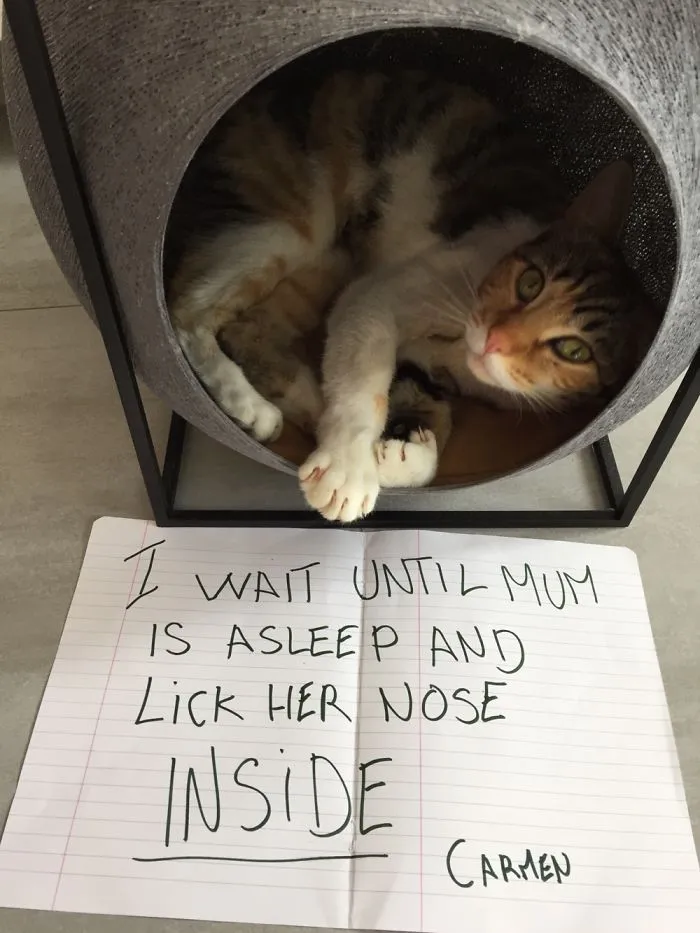 I WAIT UNTIL MUM
IS ASLEEP AND
LiCK HER NOSE
INSiDE
CARMEN